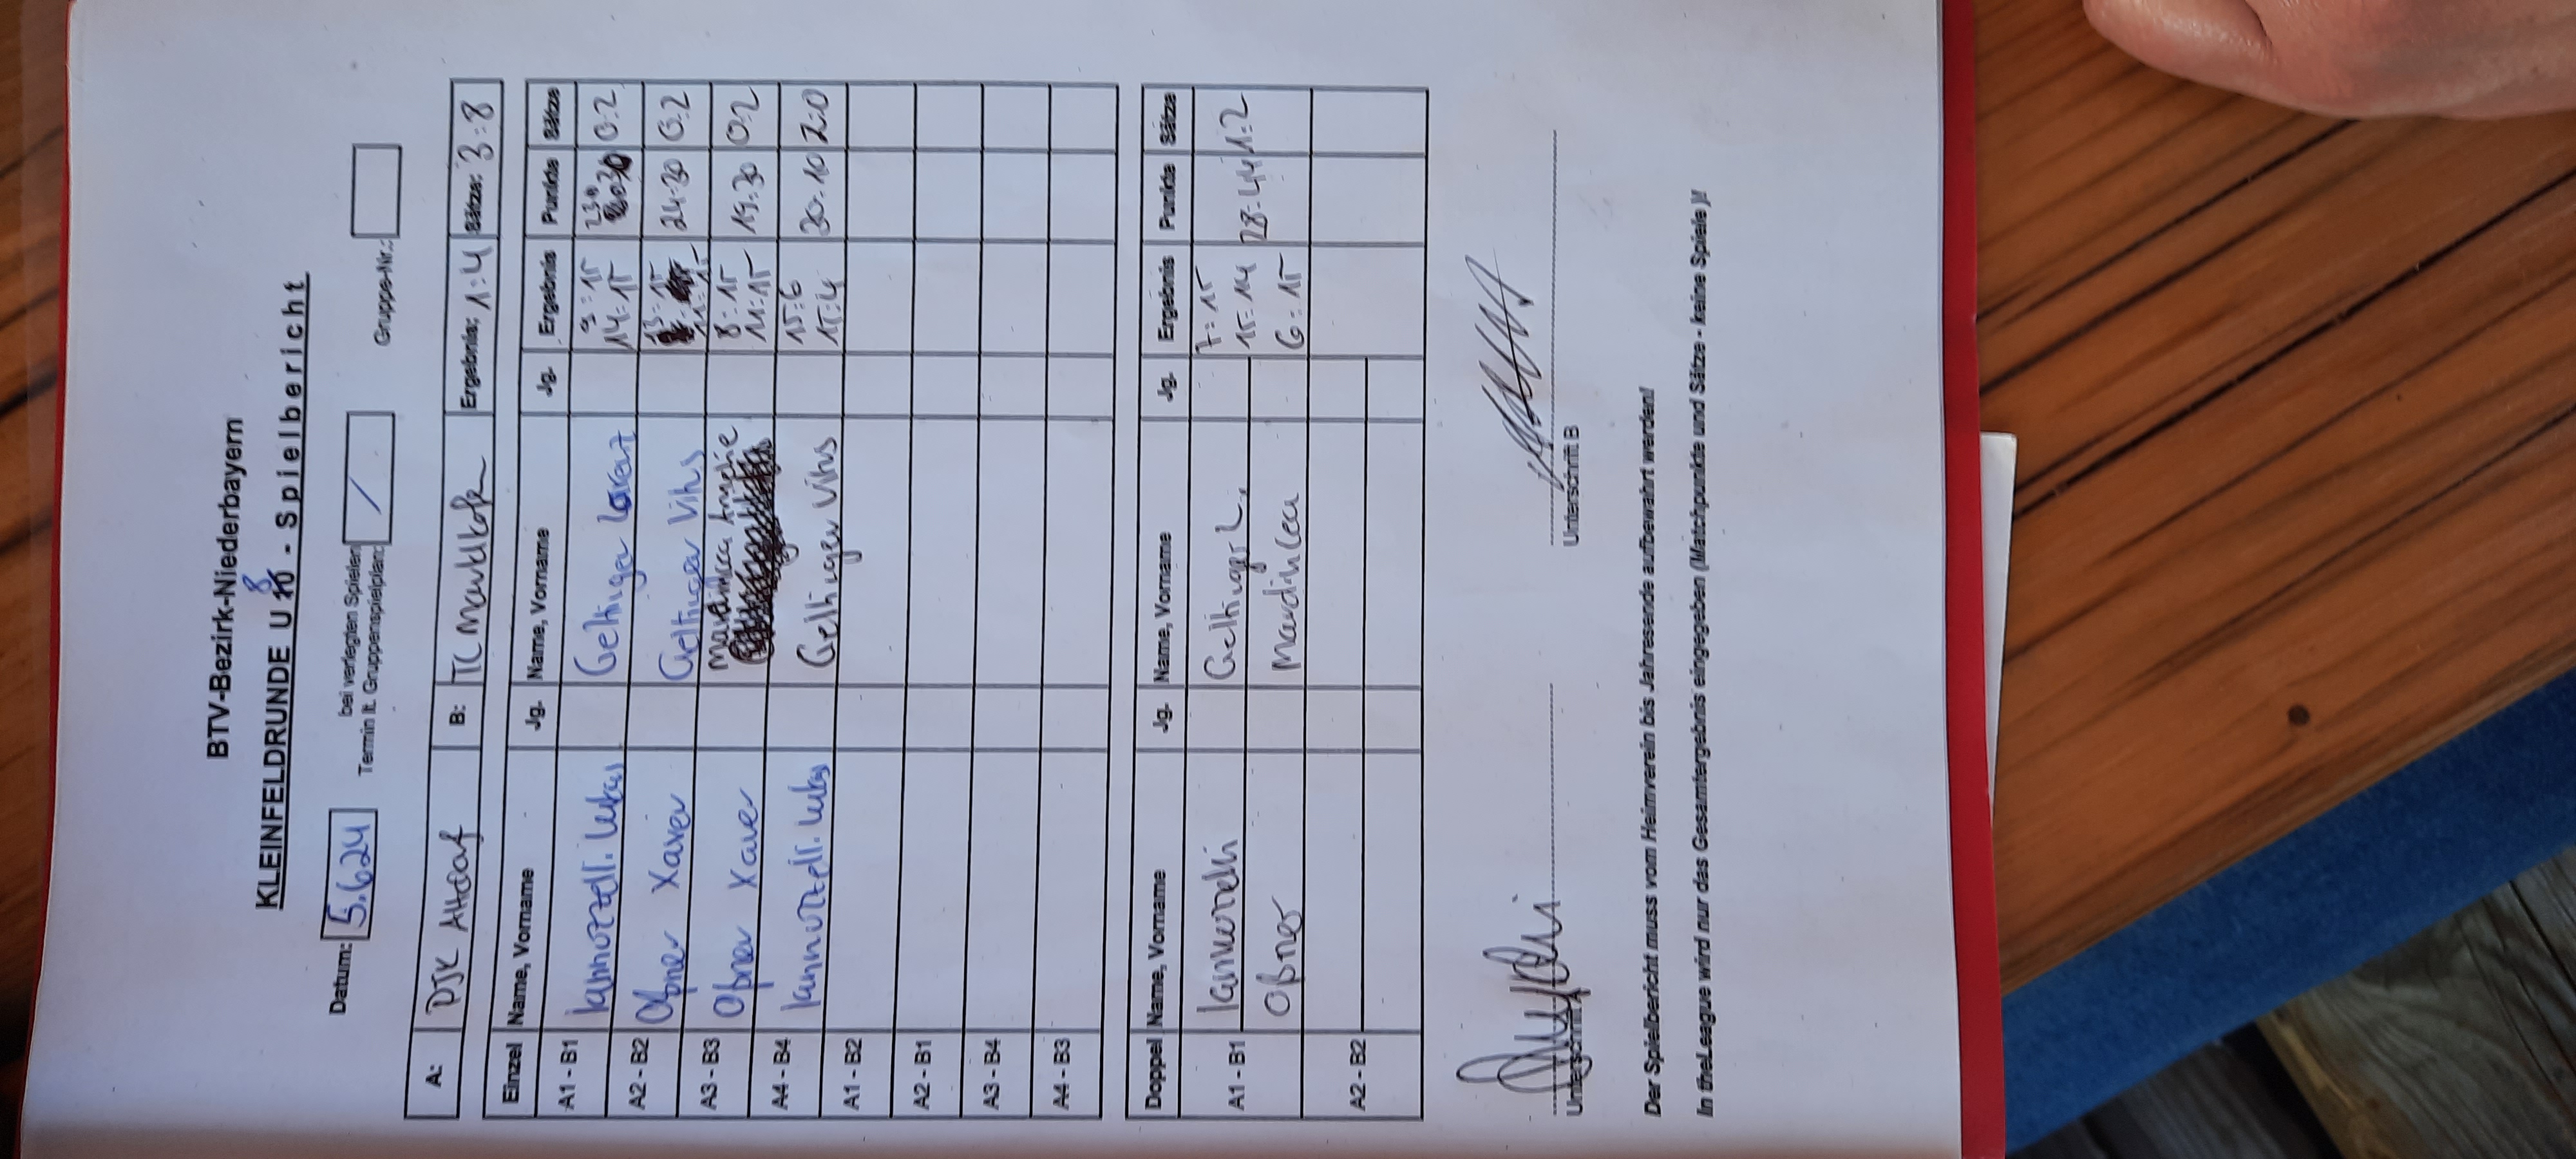 BTV-Bezirk-Niederbayern
KLEINFELDRUNDE U 8 - Spielbericht
Datum: 5.6.24 bei verlegten Spielen Termin lt. Gruppenspielplan: / Gruppe-Nr.:
A: DJK Altdorf B: TC Mantlkofen Ergebnis: 1:4 Sätze: 3:8
Einzel Name, Vorname Jg. Name, Vorname Jg. Ergebnis Punkte Sätze
A1 - B1 Iannozzelli Lukas Geltinger Lorenz 9:15 14:15 23:30 0:2
A2 - B2 Obner Xaver Geltinger Vitus 13:15 11:15 24:30 0:2
A3 - B3 Obner Xaver Amelie 8:15 11:15 19:30 0:2
A4 - B4 Lukas Geltinger Vitus 15:6 15:4 30:10 2:0
A1 - B2
A2 - B1
A3 - B4
A4 - B3
Doppel Name, Vorname Jg. Name, Vorname Jg. Ergebnis Punkte Sätze
A1 - B1 Geltinger L. 7:15 15:14 28:44 1:2
Obner 6:15
A2 - B2
Unterschrift A Unterschrift B
Der Spielbericht muss vom Heimverein bis Jahresende aufbewahrt werden!
In theLeague wird nur das Gesamtergebnis eingegeben (Matchpunkte und Sätze - keine Spiele )!